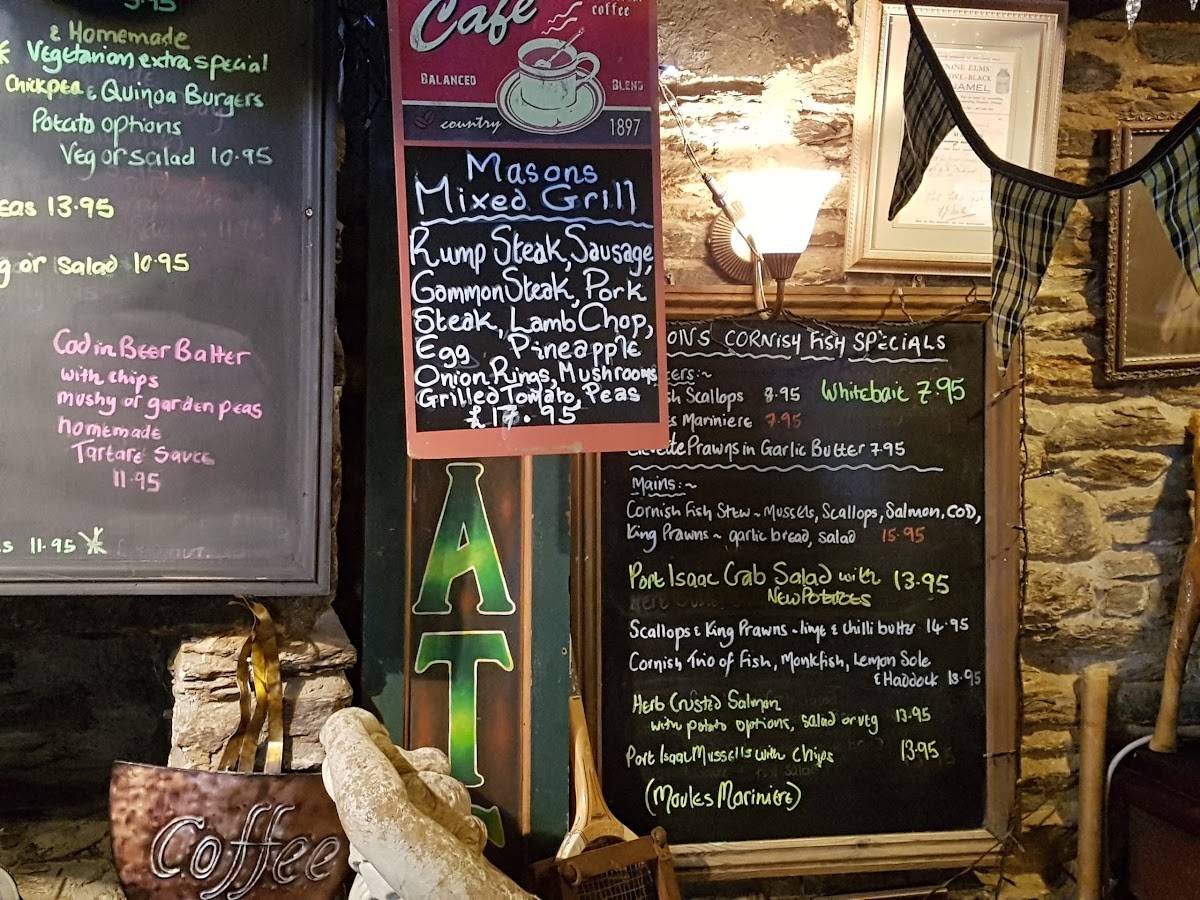 & Homemade
Vegetarian extra special
Chickpea & Quinoa Burgers
Potato options
Veg or salad 10.95
13.95
or salad 10.95
Cod in Beer Batter
with chips
mushy or garden peas
homemade
Tartare Sauce
11.95
11.95
Café
coffee
BALANCED BLEND
country 1897
Masons
Mixed Grill
Rump Steak, Sausage,
Gammon Steak, Pork
Steak, Lamb Chop,
Egg Pineapple
Onion Rings, Mushrooms
Grilled Tomato, Peas
£17.95
AT
Coffee
CORNISH FISH SPECIALS
Scallops 8.95 Whitebait 7.95
Mariniere 7.95
Prawns in Garlic Butter 7.95
Mains:~
Cornish Fish Stew ~ Mussels, Scallops, Salmon, COD,
King Prawns ~ garlic bread, salad 15.95
Port Isaac Crab Salad with 13.95
NEW POTATOES
Scallops & King Prawns - lime & chilli butter 14.95
Cornish Trio of Fish, Monkfish, Lemon Sole
& Haddock 13.95
Herb Crusted Salmon
with potato options, salad or veg 13.95
Port Isaac Mussells with Chips 13.95
(Moules Mariniere)